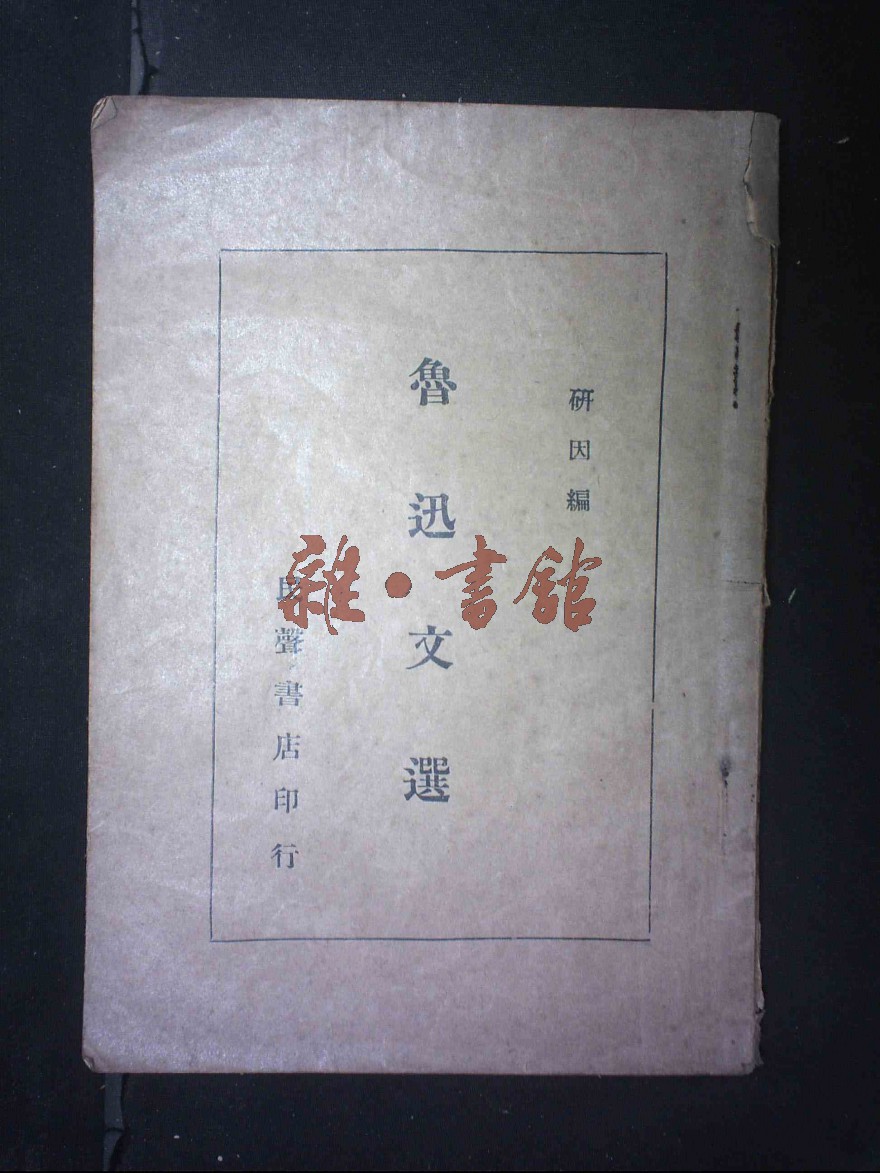 研因編
魯迅文選
民聲書店印行
雜·書館